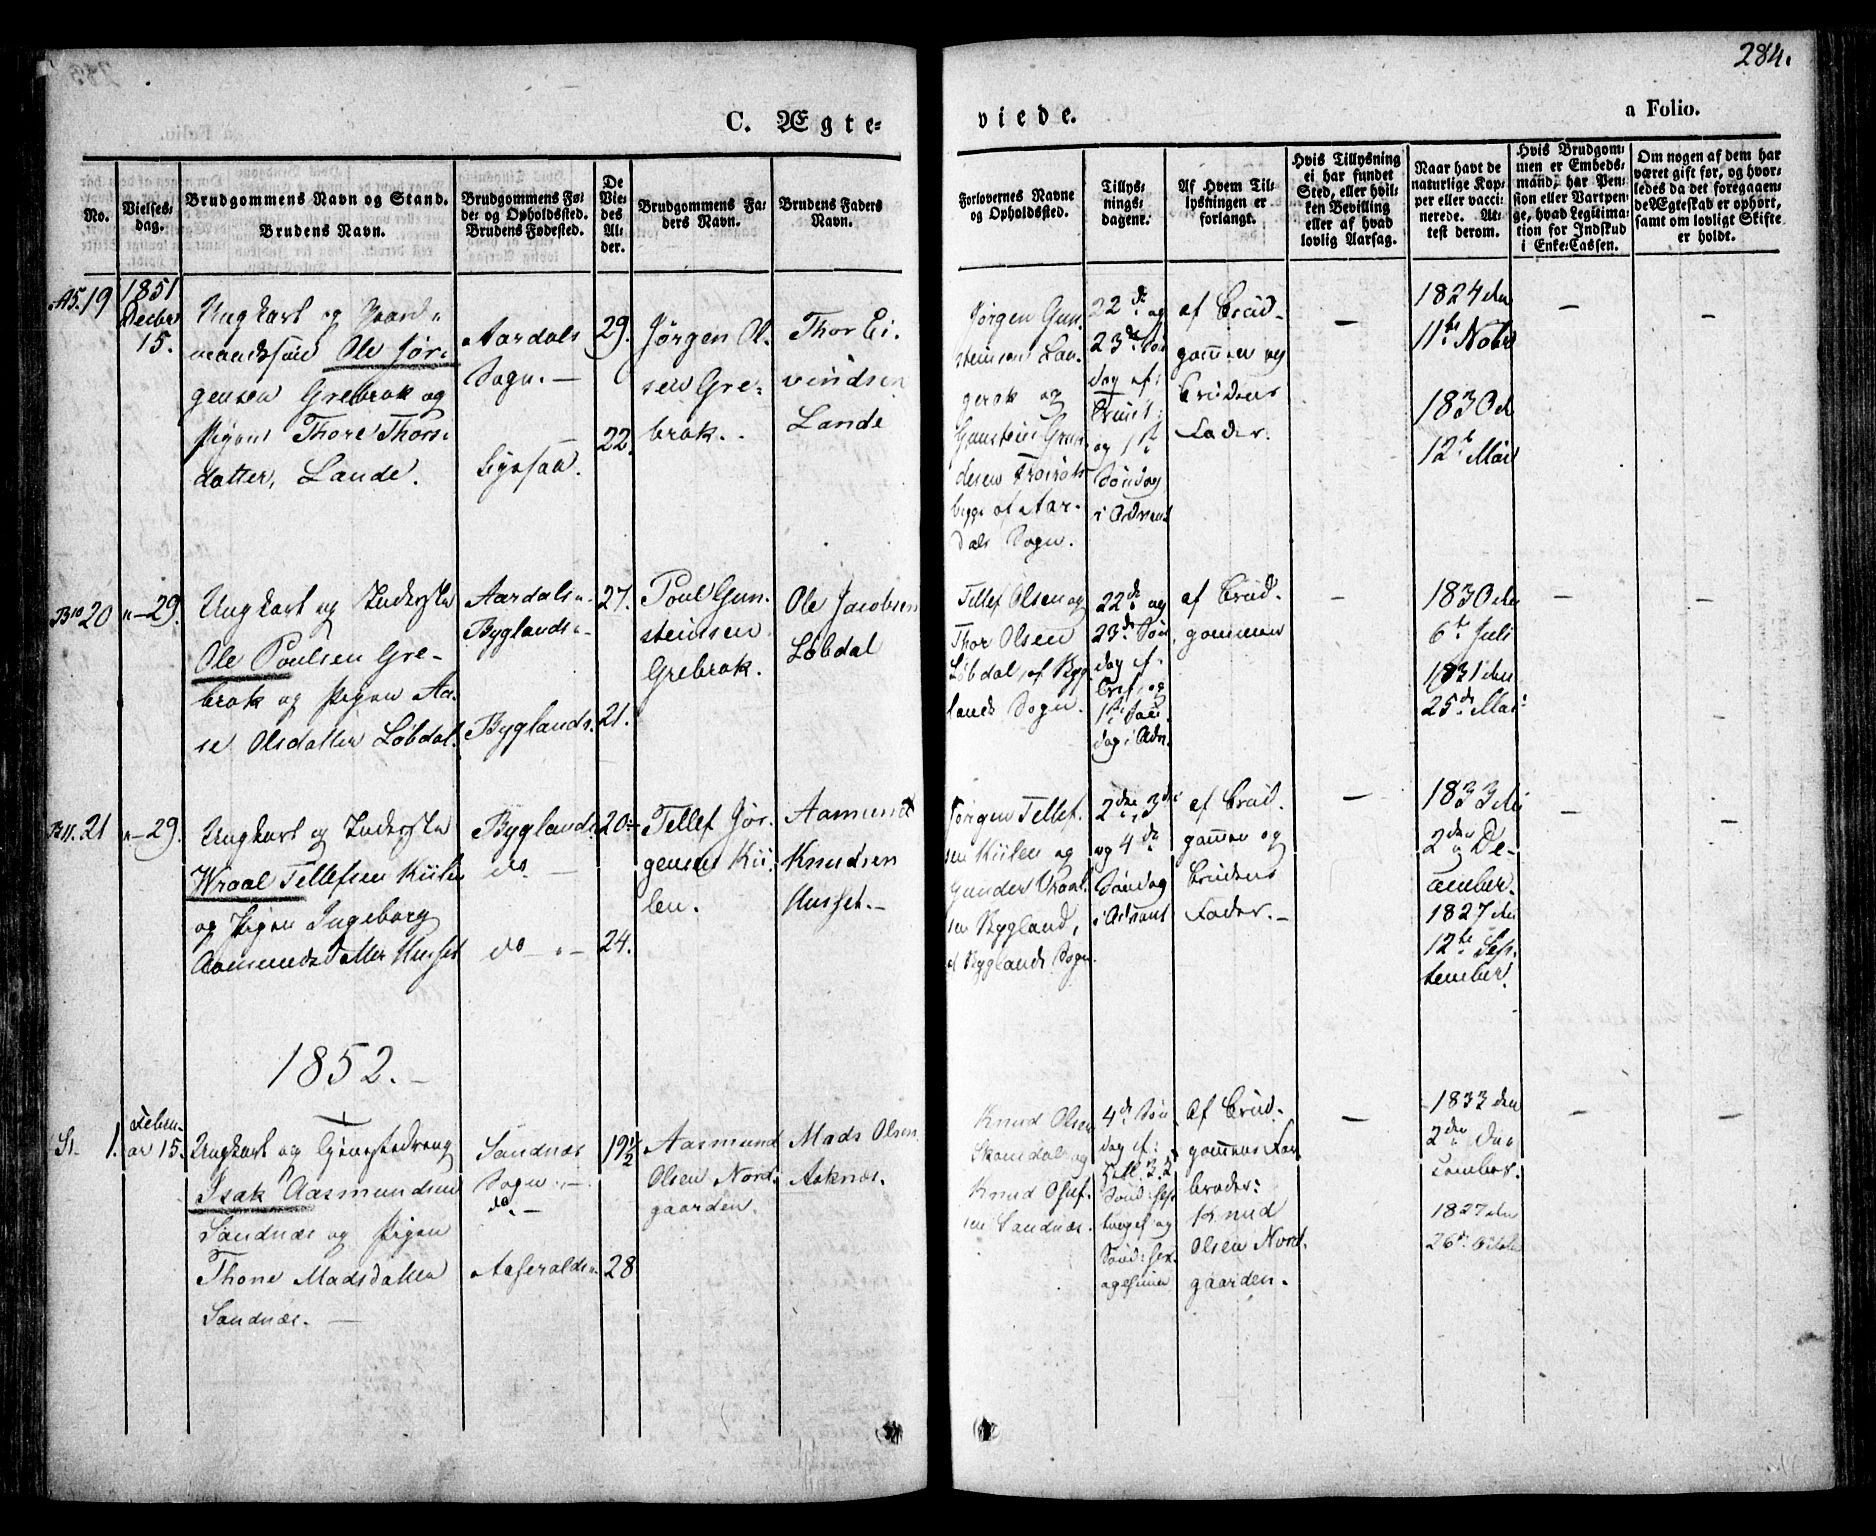 284.
C. Ægte-
viede.
a Folio.
No.
Vielses-
dag.
Brudgommens Navn og Stand.
Brudens Navn.
Brudgommens Fø-
de- og Opholdssted.
Brudens Fødested.
De
Vie-
des
Al-
der.
Brudgommens Fa-
ders Navn.
Brudens Faders
Navn.
Forlovernes Navne
og Opholdssted.
Tillys-
nings-
dagene.
Af Hvem Til-
lysningen er
forlangt.
Hvis Tillysning
ei har fundet
Sted, eller hvil-
ken Bevilling
eller af hvad
lovlig Aarsag.
Naar havt de
naturlige Kop-
per eller vacci-
nerede. At-
test derom.
Hvis Brudgom-
men er Embeds-
mand, har Pen-
sion eller Vartpen-
ge, hvad Legitima-
tion for Indskud
i Enke-Cassen.
Om nogen af dem har
været gift før, og hvor-
ledes da det foregaaen-
de Ægteskab er ophørt,
samt om lovligt Skifte
er holdt.
A5. 19
1851
Decbr
15.
Ungkarl og Gaard-
mandssøn Ole Jør-
gensen Grebrok og
Pigen Thore Thors-
datter, Lande.
Aardals
Sogn. —
29.
22.
Jørgen Ol-
sen Gre-
brok.
Thor Ei-
vindsen
Lande
Jørgen Gun-
steinsen Lan-
gerak og
Gunstein Gun-
desen
begge af Aar-
dals Sogn.
22de og
23de Søn
dag ef:
Trinit:
og 1ste
Søndag
i Advent
af Brud-
gommen og
Brudens
Fader.
—
1824 den
11te Nobr
1830 d
12te Mai
—
—
B10 20
"—29.
Ungkarl og Inderste
Ole Poulsen Gre-
brok og Pigen Aa-
se Olsdatter Løbdal.
Aardals
Byglands
Byglands.
27.
21.
Poul Gun-
steinsen
Grebrok.
Ole Jacobsen
Løbdal
Tellef Olsen og
Thor Olsen
Løbdal, af Byg
lands Sogn.
22de og
23de Søn
dag ef.
Tref. og
1ste Søn
dag i Adv.
af Brud-
gommen
—
1830 den
6te Juli
1831 den
25de Mai
—
—
B11. 21
"—29.
Ungkarl og Inderste
Wraal Tellefsen Kiilen
og Pigen Ingeborg
Aamunds Datter Husset
Byglands.
do —
do — " —
20
24.
Tellef Jør-
gensen Kii-
len.
Aamund
Knudsen
Husset.—
Jørgen Tellef-
sen Kiilen og
Gunder Vraal-
sen Bygland,
af Byglands Sogn.
2den, 3die
og 4de
Søndag
i Advent
af Brud-
gommen og
Brudens
Fader.—
—
1833 den
2den De-
cember.
1827 den
12te Sep-
tember.
—
—
1852.—
S1. 1.
Februar
ar 15.
Ungkarl og Tjenestedreng
Isak Aasmundsen
Sandnæs og Pigen
Thone Madsdatter
Sandnæs. —
Sandnæs
Sogn.—
do—
Aaseralds
19½
28
Aasmund
Olsen Nord-
gaarden.
Mads Olsen
Aaknæs.
Knud Olsen
Skomdal og
Knud
sen Sandnæs.
4de Søn
dag ef:
Søndag
og
Sønd: Sex-
agesima
Af Brud-
gommens Far
broder:
Knud
Olsen Nord-
gaarden.
—
1833 den
2den De-
cember.
1827 den
26de Octobr
—
—